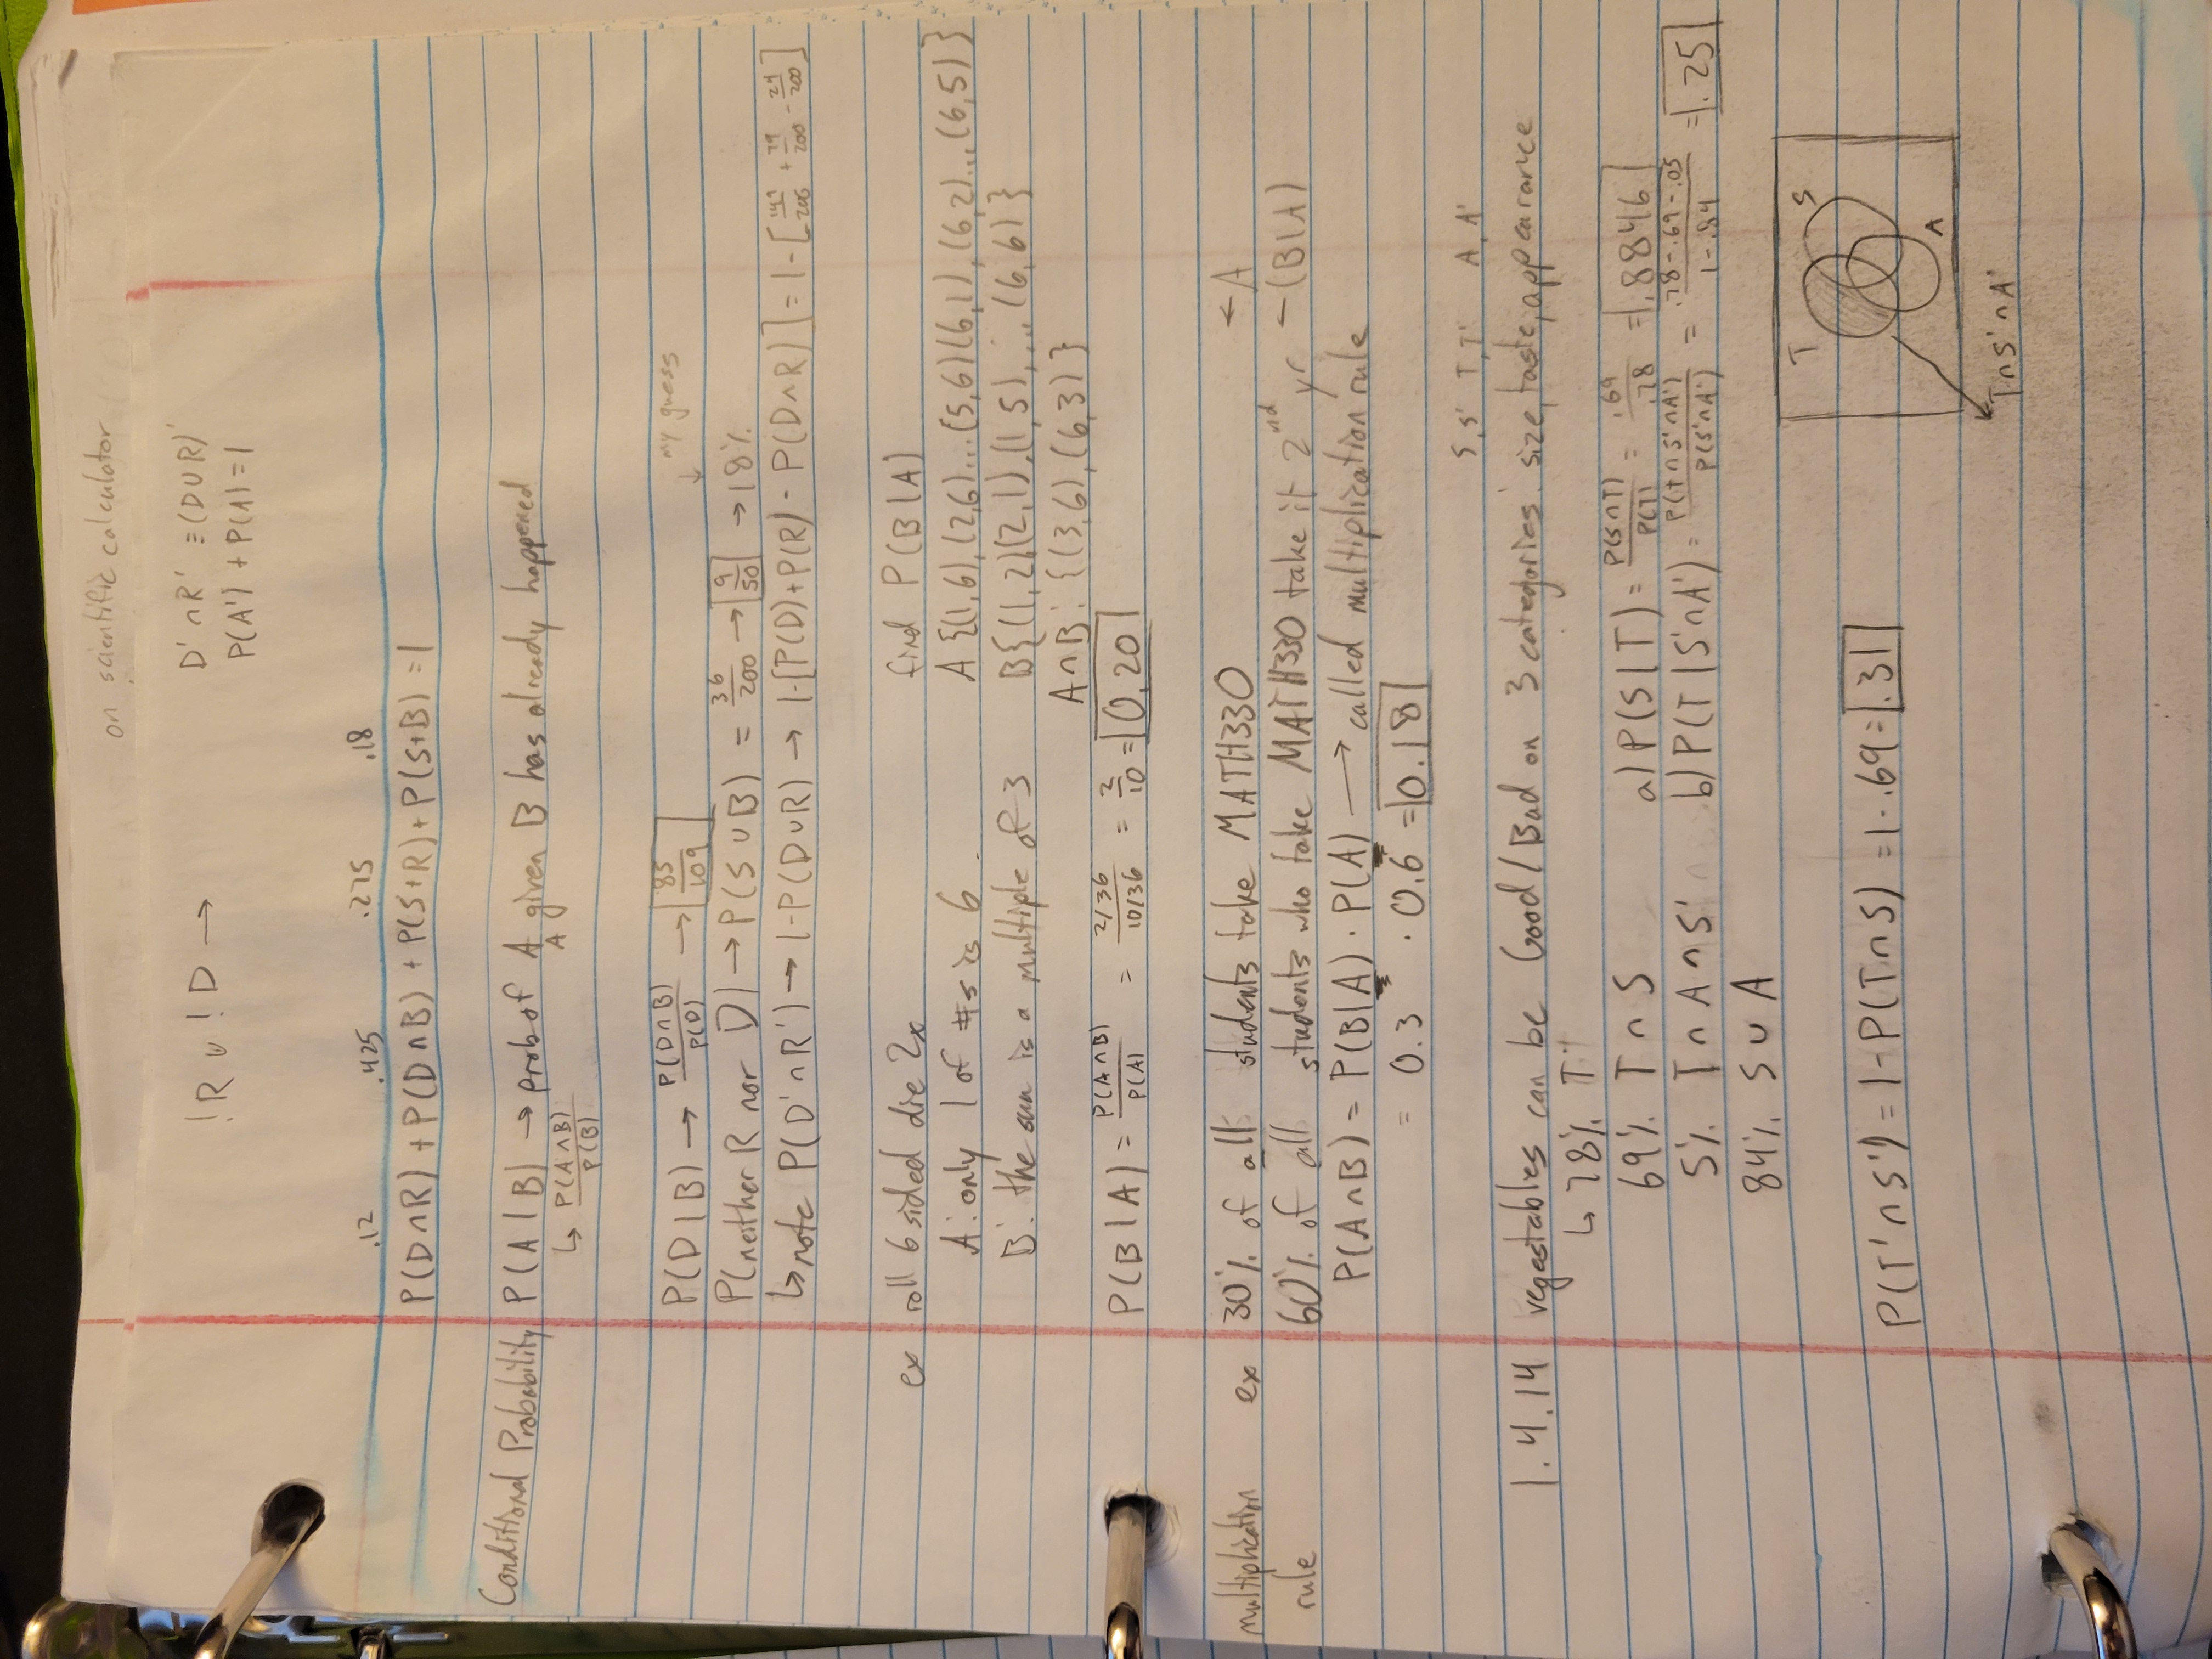 on scientific calculator
!R ∪ !D →
D' ∩ R' ≡ (D∪R)'
P(A') + P(A) = 1
.12 .425 .275 .18
P(D∩R) + P(D∩B) + P(S+R) + P(S+B) = 1
Conditional Probability P(A|B) → prob of A given B has already happened
A
↳ P(A∩B)/P(B)
my guess
↓
P(D|B) → P(D∩B)/P(D) → 85/109
P(neither R nor D) → P(S∪B) = 36/200 → 9/50 → 18%
↳ note P(D'∩R') → 1-P(D∪R) → 1-[P(D)+P(R) - P(D∩R)] = 1-[149/200 + 79/200 - 24/200]
ex roll 6 sided die 2x find P(B|A)
A: only 1 of #s is 6 A{(1,6),(2,6)...(5,6)(6,1),(6,2)...(6,5)}
B: the sum is a multiple of 3 B{(1,2)(2,1),(1,5),...(6,6)}
A∩B: {(3,6),(6,3)}
P(B|A) = P(A∩B)/P(A) = 2/36/10/36 = 2/10 = 0.20
multiplication rule
ex 30% of all students take MATH330 ← A
60% of all students who take MATH330 take it 2nd yr - (B|A)
P(A∩B) = P(B|A) · P(A) → called multiplication rule
= 0.3 · 0.6 = 0.18
S,S' T,T' A,A'
1.4.14 vegestables can be Good/Bad on 3 categories: size, taste, appearance
↳ 78% T
69% T∩S a) P(S|T) = P(S∩T)/P(T) = .69/.78 = .8846
5% T∩A∩S' b) P(T|S'∩A') = P(T∩S'∩A')/P(S'∩A') = .78-.69-.05/1-.84 = .25
84% S∪A
T S
A
P(T'∩S') = 1-P(T∩S) = 1-.69 = .31
T∩S'∩A'